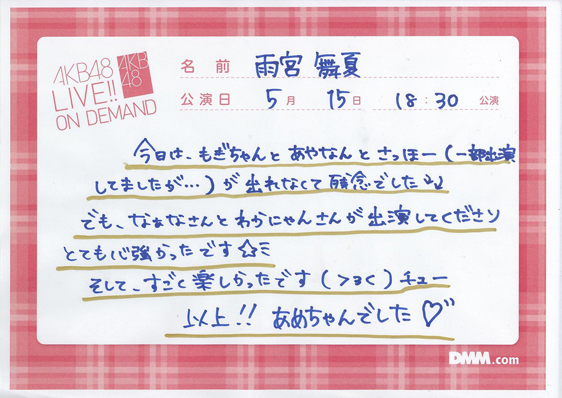 AKB48
LIVE!!
ON DEMAND
AKB
48
名前 雨宮 舞夏
公演日 5月 15日 18:30 公演
今日は、もぎちゃんと あやなんと さっほー(一部出演
してましたが…)が 出れなくて 残念でした↓↓
でも、なぁなさんと わかにゃんさんが 出演してくださり
とても心強かったです☆ミ
そして、すごく楽しかったです(>3<)チュー
以上!! あめちゃんでした♡
DMM.com